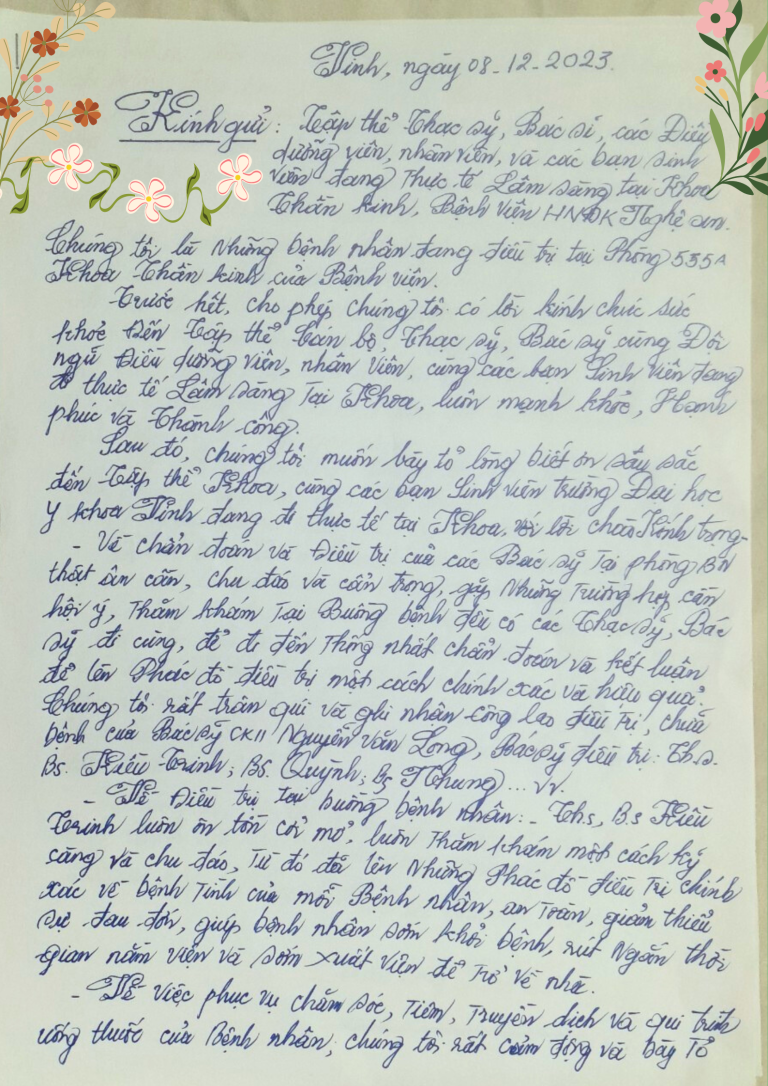 Vinh, ngày 08-12-2023.
Kính gửi: Tập thể Thạc sỹ, Bác sĩ, các Điều
dưỡng viên, nhân viên, và các bạn sinh
viên đang Thực tế Lâm sàng tại Khoa
Thần kinh, Bệnh viện HNĐK Nghệ an.
Chúng tôi là Những bệnh nhân đang điều trị tại Phòng 535A
Khoa Thần kinh của Bệnh viện.
Trước hết, cho phép chúng tôi có lời kính chúc sức
khỏe Đến Tập thể Cán bộ Thạc sỹ, Bác sỹ cùng Đội
ngũ Điều dưỡng viên, nhân viên, cùng các bạn Sinh viên đang
đi thực tế Lâm sàng Tại Khoa, luôn mạnh khỏe, Hạnh
phúc và Thành công.
Sau đó, chúng tôi muốn bày tỏ lòng biết ơn sâu sắc
đến Tập thể Khoa, cùng các bạn Sinh viên trường Đại học
Y khoa Vinh đang đi thực tế tại Khoa, với lời chào Kính trọng.
- Về chẩn đoán và Điều trị của các Bác sỹ Tại phòng BN
thật ân cần, chu đáo và cẩn trọng, gặp Những Trường hợp cần
hội ý, Thăm khám Tại Buồng bệnh đều có các Thạc sỹ, Bác
sỹ đi cùng, để đi đến Thống nhất chẩn đoán và kết luận
để lên Phác đồ điều trị một cách chính xác và hậu quả.
Chúng tôi rất trân quí và ghi nhận công lao điều trị, chữa
bệnh của Bác sỹ CKII Nguyễn Văn Long, Bác sỹ điều trị: Th.s.
BS. Kiều Trinh; BS. Quỳnh; BS Nhung... vv.
- Về Điều trị tại buồng bệnh nhân: - Ths, B.s Kiều
Trinh luôn ôn tồn cởi mở, luôn Thăm khám một cách kỹ
càng và chu đáo, Từ đó đã lên Những Phác đồ điều Trị chính
xác về bệnh Tình của mỗi Bệnh nhân, an Toàn, giảm thiểu
sự đau đớn, giúp bệnh nhân sớm khỏi bệnh, rút Ngắn thời
gian nằm viện và sớm xuất viện để Trở về nhà.
- Về việc phục vụ chăm sóc, Tiêm, Truyền dịch và qui trình
uống thuốc của Bệnh nhân, chúng tôi rất cảm động và bày Tỏ